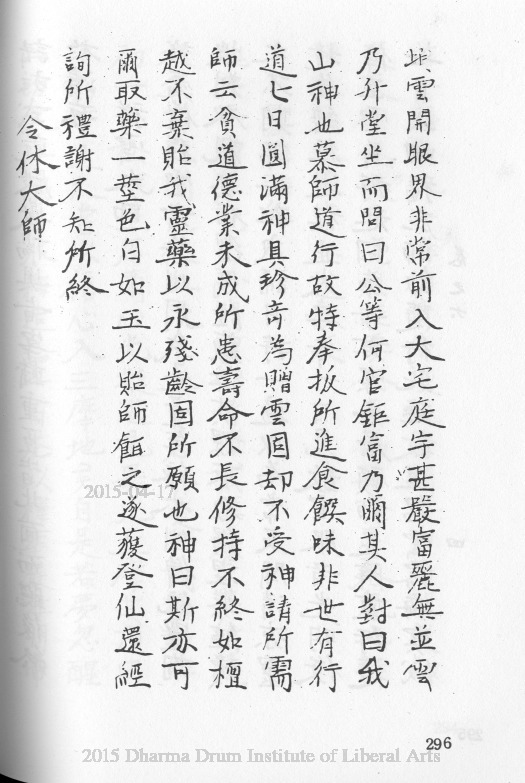 此雲開眼界非常前入大宅庭宇甚嚴富麗無並雲
乃升堂坐而問曰公等何官鉅富乃爾其人對曰我
山神也慕師道行故特奉扳所進食饌味非世有行
道七日圓滿神具珍奇為贈雲固却不受神請所需
師云貧道德業未成所患壽命不長修持不終如檀
越不棄貽我靈藥以永殘齡固所願也神曰斯亦可
爾取藥一莖色白如玉以貽師餌之遂獲登仙還經
詢所禮謝不知所終
令休大師
2015-04-17
296
2015 Dharma Drum Institute of Liberal Arts